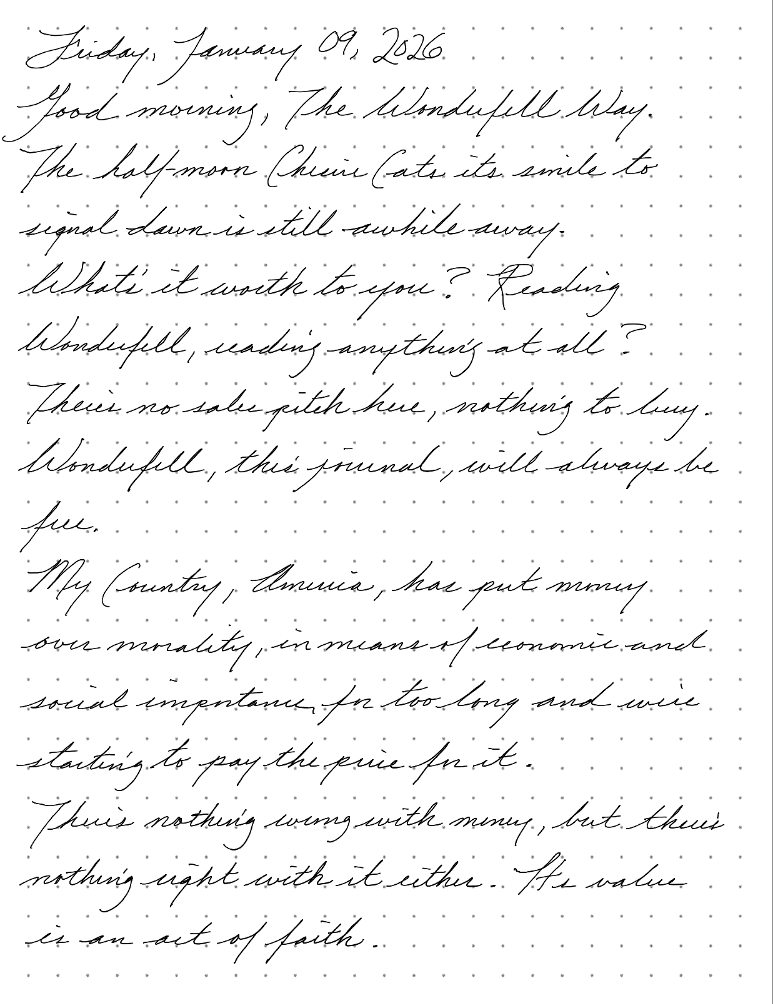 Friday, January 09, 2026
Good morning, The Wonderfell Way.
The half-moon Chesire Cats its smile to
signal dawn is still awhile away.
What's it worth to you? Reading
Wonderfell, reading anything at all?
There's no sales pitch here, nothing to buy.
Wonderfell, this journal, will always be
free.
My Country, America, has put money
over morality, in means of economic and
social importance, for too long and we're
starting to pay the price for it.
There's nothing wrong with money, but there's
nothing right with it either. It's value
is an act of faith.